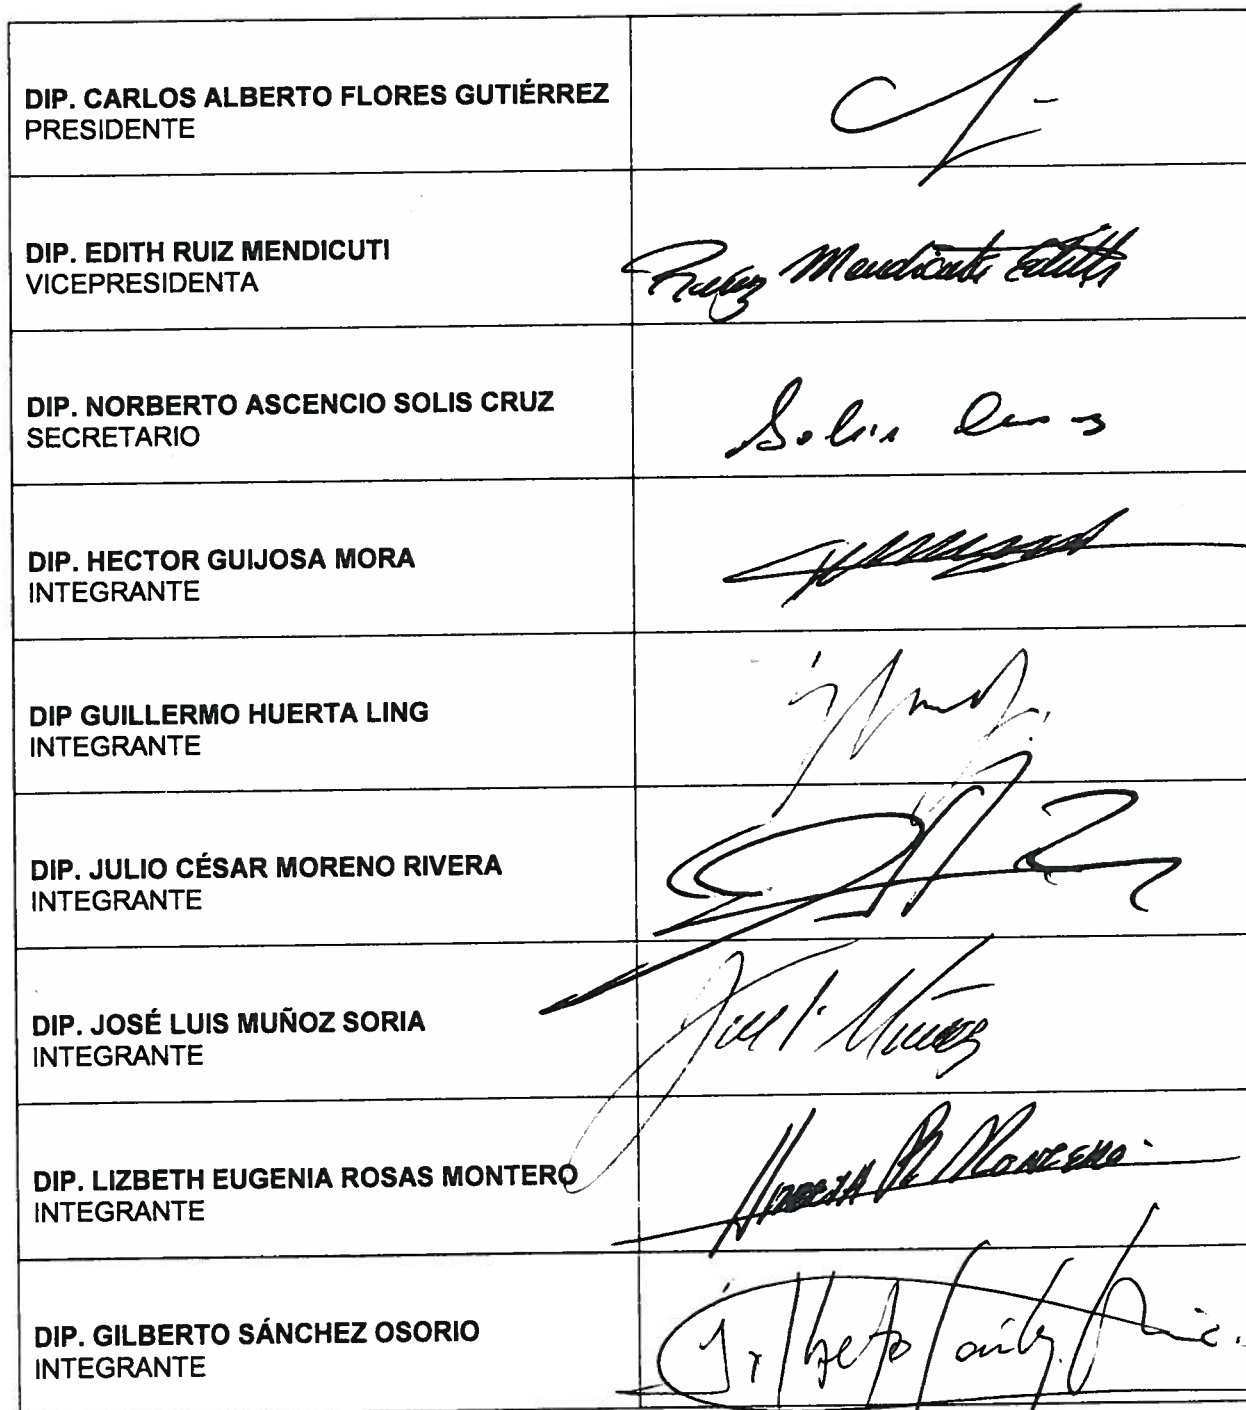 DIP. CARLOS ALBERTO FLORES GUTIÉRREZ
PRESIDENTE
DIP. EDITH RUIZ MENDICUTI
VICEPRESIDENTA
Ruiz Mendicuti Edith
DIP. NORBERTO ASCENCIO SOLIS CRUZ
SECRETARIO
Solis Cruz
DIP. HECTOR GUIJOSA MORA
INTEGRANTE
DIP GUILLERMO HUERTA LING
INTEGRANTE
DIP. JULIO CÉSAR MORENO RIVERA
INTEGRANTE
DIP. JOSÉ LUIS MUÑOZ SORIA
INTEGRANTE
José L. Muñoz
DIP. LIZBETH EUGENIA ROSAS MONTERO
INTEGRANTE
DIP. GILBERTO SÁNCHEZ OSORIO
INTEGRANTE